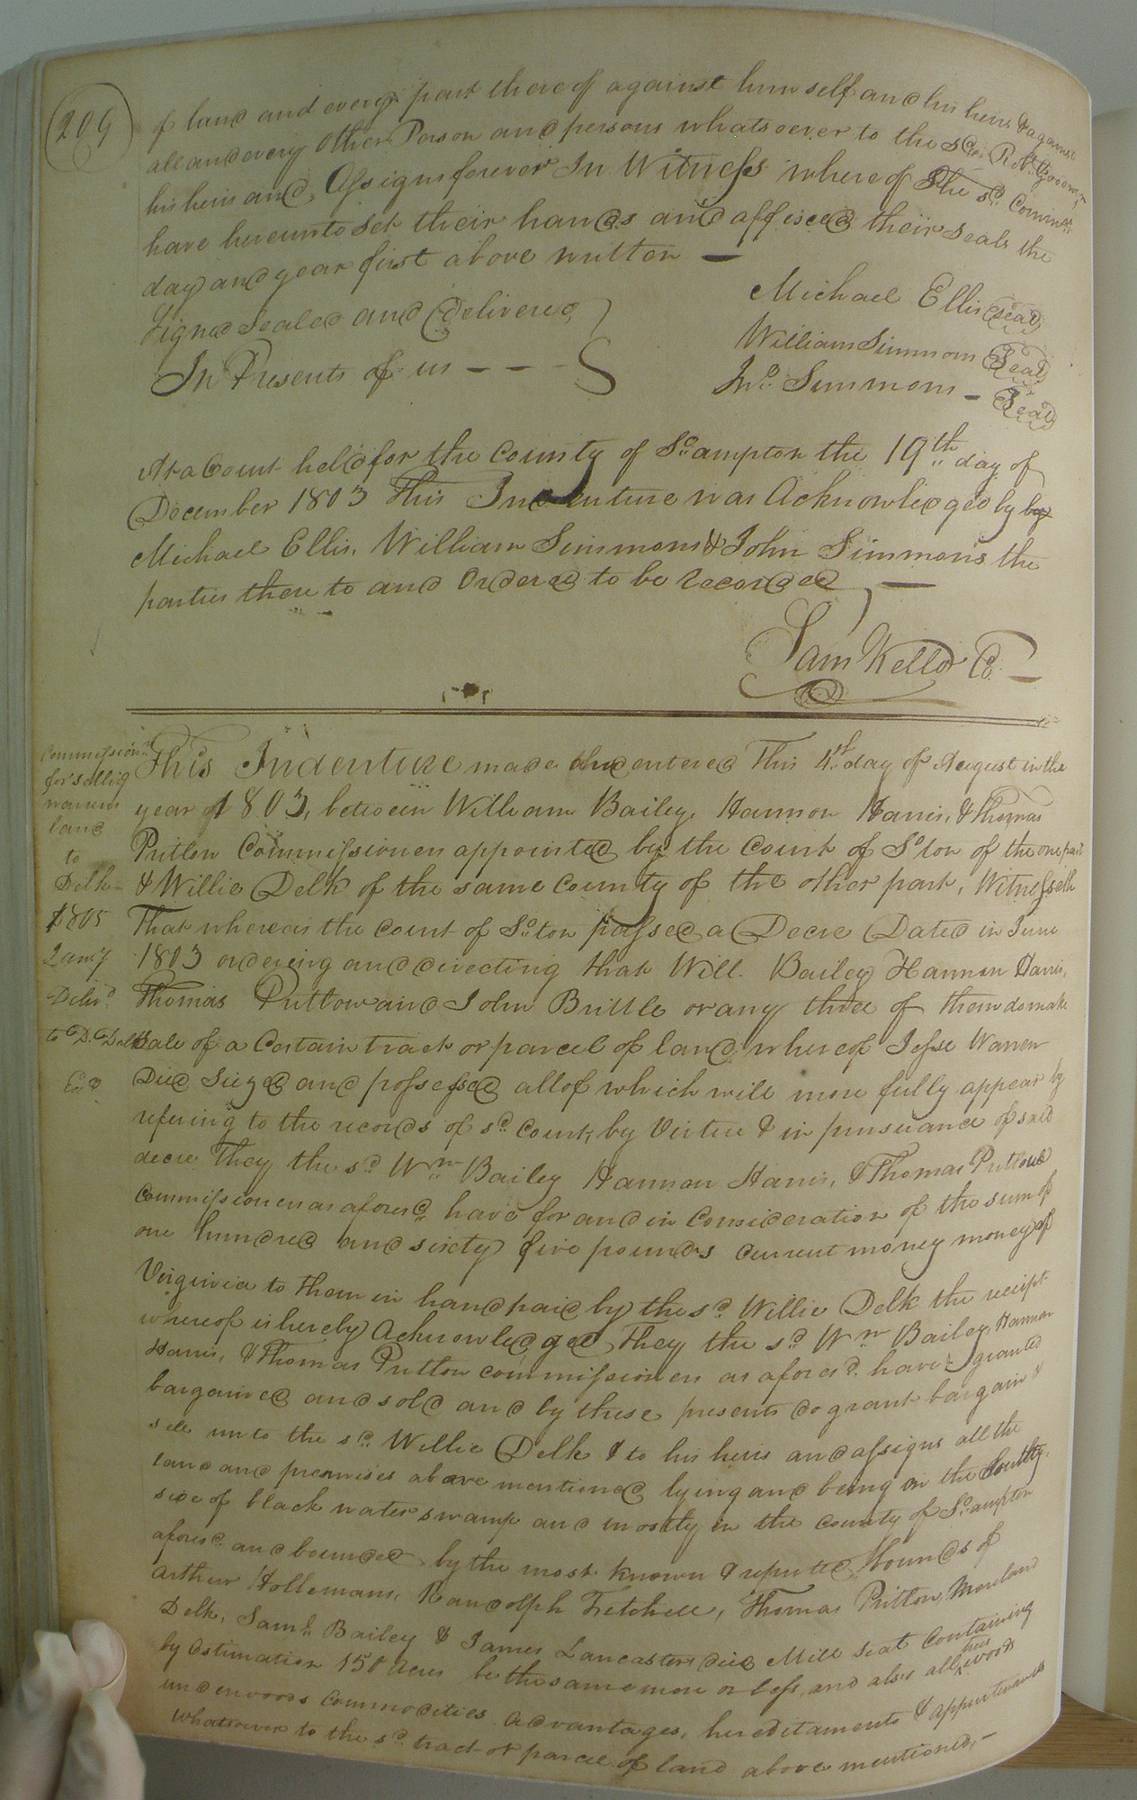 209
of land and every part thereof against himself and his heirs & against
all and every other Person and persons whatsoever to the sd. Ro. Goodwyn
his heirs and Assigns forever In Witness whereof The sd. Commrs.
have hereunto set their hands and affixed their seals the
day and year first above written —
Signed Sealed and Delivered
In Presents of us - - -
Michael Ellis Seal
William Simmons Seal
Jno. Simmons - Seal
At a Court held for the County of So.ampton the 19th day of
December 1803 This Indenture was Acknowledged by by
Michael Ellis, William Simmons & John Simmons the
parties there to and Ordered to be recorded —
Sam Kello C.
Commission.
for selling
warrens
land
to
Delk
1805
Jany
Delivd.
to D. Delk
Exd.
This Indenture made and entered This 4th day of August in the
year of 1803, between William Bailey, Hannon Harris, & Thomas
Pretlow Commissioners appointed by the Court of So.ton of the one part
& Willie Delk of the same county of the other part, Witnesseth
That whereas the Court of So.ton passed a Decre Dated in June
1803 ordering and directing that Will. Bailey Hannon Harris,
Thomas Pretlow and John Brittle or any three of them do make
Sale of a Certain track or parcel of land whereof Jesse Warren
Died Siezed and possessed all of which will more fully appear by
refering to the records of sd. Court, by Virtue & in pursuance of said
decre They the sd. Wm. Bailey Hannon Harris, & Thomas Pretlow
Commissioners as aforesd. have for and in Consideration of the sum of
one hundred and sixty five pounds current money money of
Virginia to them in hand paid by the sd. Willie Delk the receipt
whereof is hereby Acknowledged They the sd. Wm. Bailey, Hannon
Harris, & Thomas Pretlow commissioners as aforesd. have granted
bargained and sold and by these presents do grant bargain &
sell unto the sd. Willie Delk & to his heirs and assigns all the
land and premises above mentioned lying and being on the South
side of black water swamp and mostly in the county of So.ampton
aforesd. and bounded by the most known & reputed bounds of
Arthur Hollemans, Randolph Fitchell, Thomas Pretlow, Moreland
Delk, Saml. Bailey & James Lancasters died Mill seat Containing
by Estimation 150 Acres be the same more or less, and also all his woods
underwoods commodities advantages, hereditaments & appurtenants
whatsoever to the sd. tract or parcel of land above mentioned, -